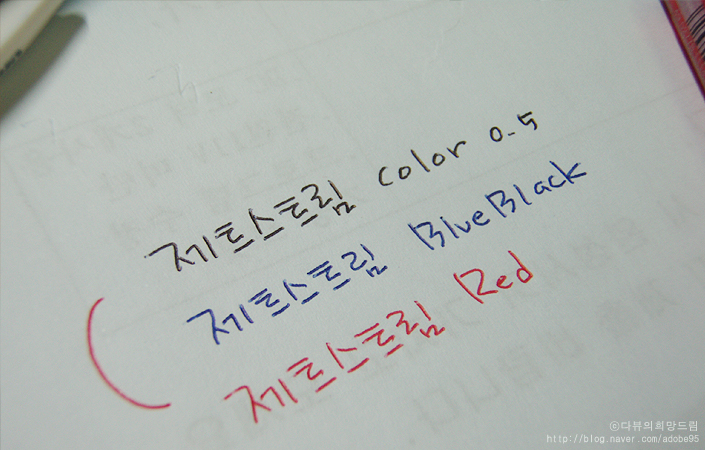 제트스트림 color 0.5
제트스트림 BlueBlack
제트스트림 Red
ⓒ다뷰의희망드림
http://blog.naver.com/adobe95